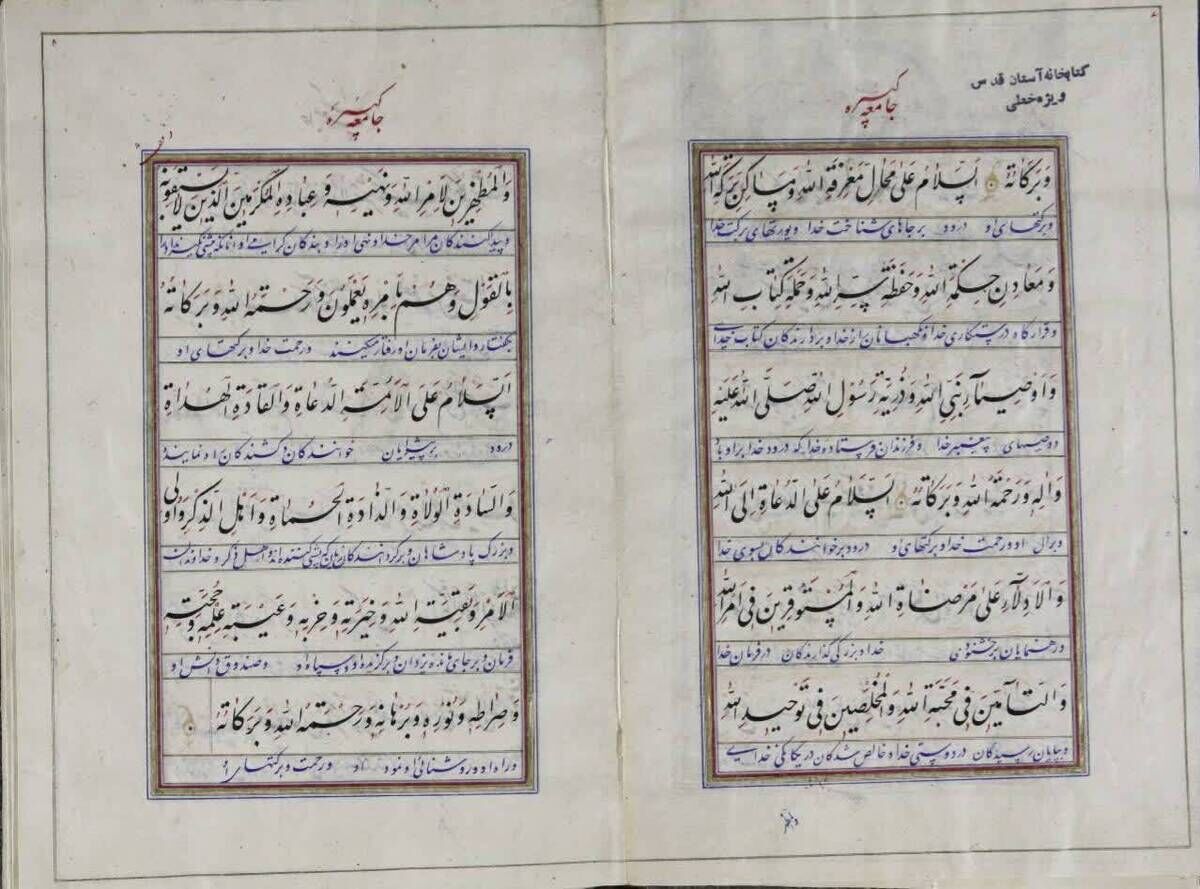 ۷
کتابخانه آستان قدس
ویژه خطی
جامعه کبیره
وَبَرَكاتُهُ اَلسَّلامُ عَلىٰ مَحالِّ مَعْرِفَةِ اللهِ وَمَساكِنِ بَرَكَةِ اللهِ
وبرکتهای او درود برجاهای شناخت خدا ویورتهای برکت خدا
وَمَعادِنِ حِكْمَةِ اللهِ وَحَفَظَةِ سِرِّ اللهِ وَحَمَلَةِ كِتابِ اللهِ
وقرارگاه درستکاری خدا ونگهبانان راز خدا وبردارندگان کتاب خدای
وَاَوْصِياءِ نَبِيِّ اللهِ وَذُرِّيَّةِ رَسُولِ اللهِ صَلَّى اللهُ عَلَيْهِ
ووصیهای پیغمبر خدا وفرزندان فرستاده خدا که درود خدا براو باد
وَالِهِ وَرَحْمَةُ اللهِ وَبَرَكاتُهُ اَلسَّلامُ عَلَى الدُّعاةِ اِلَى اللهِ
وبرآل او ورحمت خدا وبرکتهای او درود برخوانندگان بسوی خدا
وَالْاَدِلّاءِ عَلىٰ مَرْضاةِ اللهِ وَالْمُسْتَوْفِرينَ فى اَمْرِ اللهِ
ورهنمایان برخشنودی خدا وبزرگی گذارندگان درفرمان خدا
وَالتّامّينَ فى مَحَبَّةِ اللهِ وَالْمُخْلِصينَ فى تَوْحيدِ اللهِ
وبپایان رسیدگان دردوستی خدا وخالص شدگان دریگانگی خدای
۸
جامعه کبیره
وَالْمُظْهِرينَ لِاَمْرِ اللهِ وَنَهْيِهِ وَعِبادِهِ الْمُكْرَمينَ الَّذينَ لا يَسْبِقُونَهُ
وپیداکنندگان مرامر خدا ونهی اورا وبندگان گرامی او آنانکه پیشی نگیرند اورا
بِالْقَوْلِ وَهُمْ بِاَمْرِهِ يَعْمَلُونَ وَرَحْمَةُ اللهِ وَبَرَكاتُهُ
بگفتار وایشان بفرمان او رفتار میکنند ورحمت خدا وبرکتهای او
اَلسَّلامُ عَلَى الْاَئِمَّةِ الدُّعاةِ وَالْقادَةِ الْهُداةِ
درود برپیشوایان خوانندگان وکشندگان راه نمایند
وَالسّادَةِ الْوُلاةِ وَالذّادَةِ الْحُماةِ وَاَهْلِ الذِّكْرِ وَاُولِى
وبزرگ پادشاهان وبرگردانندگان واهل ذکر وخداوندان
الْاَمْرِ وَبَقِيَّةِ اللهِ وَخِيَرَتِهِ وَحِزْبِهِ وَعَيْبَةِ عِلْمِهِ وَحُجَّتِهِ
فرمان وبرجای مانده یزدان وبرگزیده او وسپاه او وصندوق دانش او
وَصِراطِهِ وَنُورِهِ وَبُرْهانِهِ وَرَحْمَةُ اللهِ وَبَرَكاتُهُ
وراه او وروشنائی او ورحمت وبرکتهای او